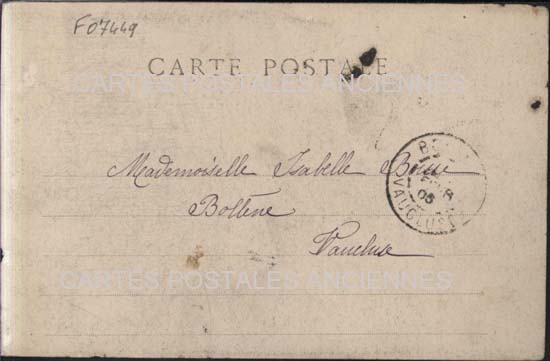 F07449
CARTE POSTALE
CARTES POSTALES ANCIENNES
Mademoiselle Isabelle
Bollène
Vaucluse
VAUCLUSE
05
CARTES POSTALES ANCIENNES